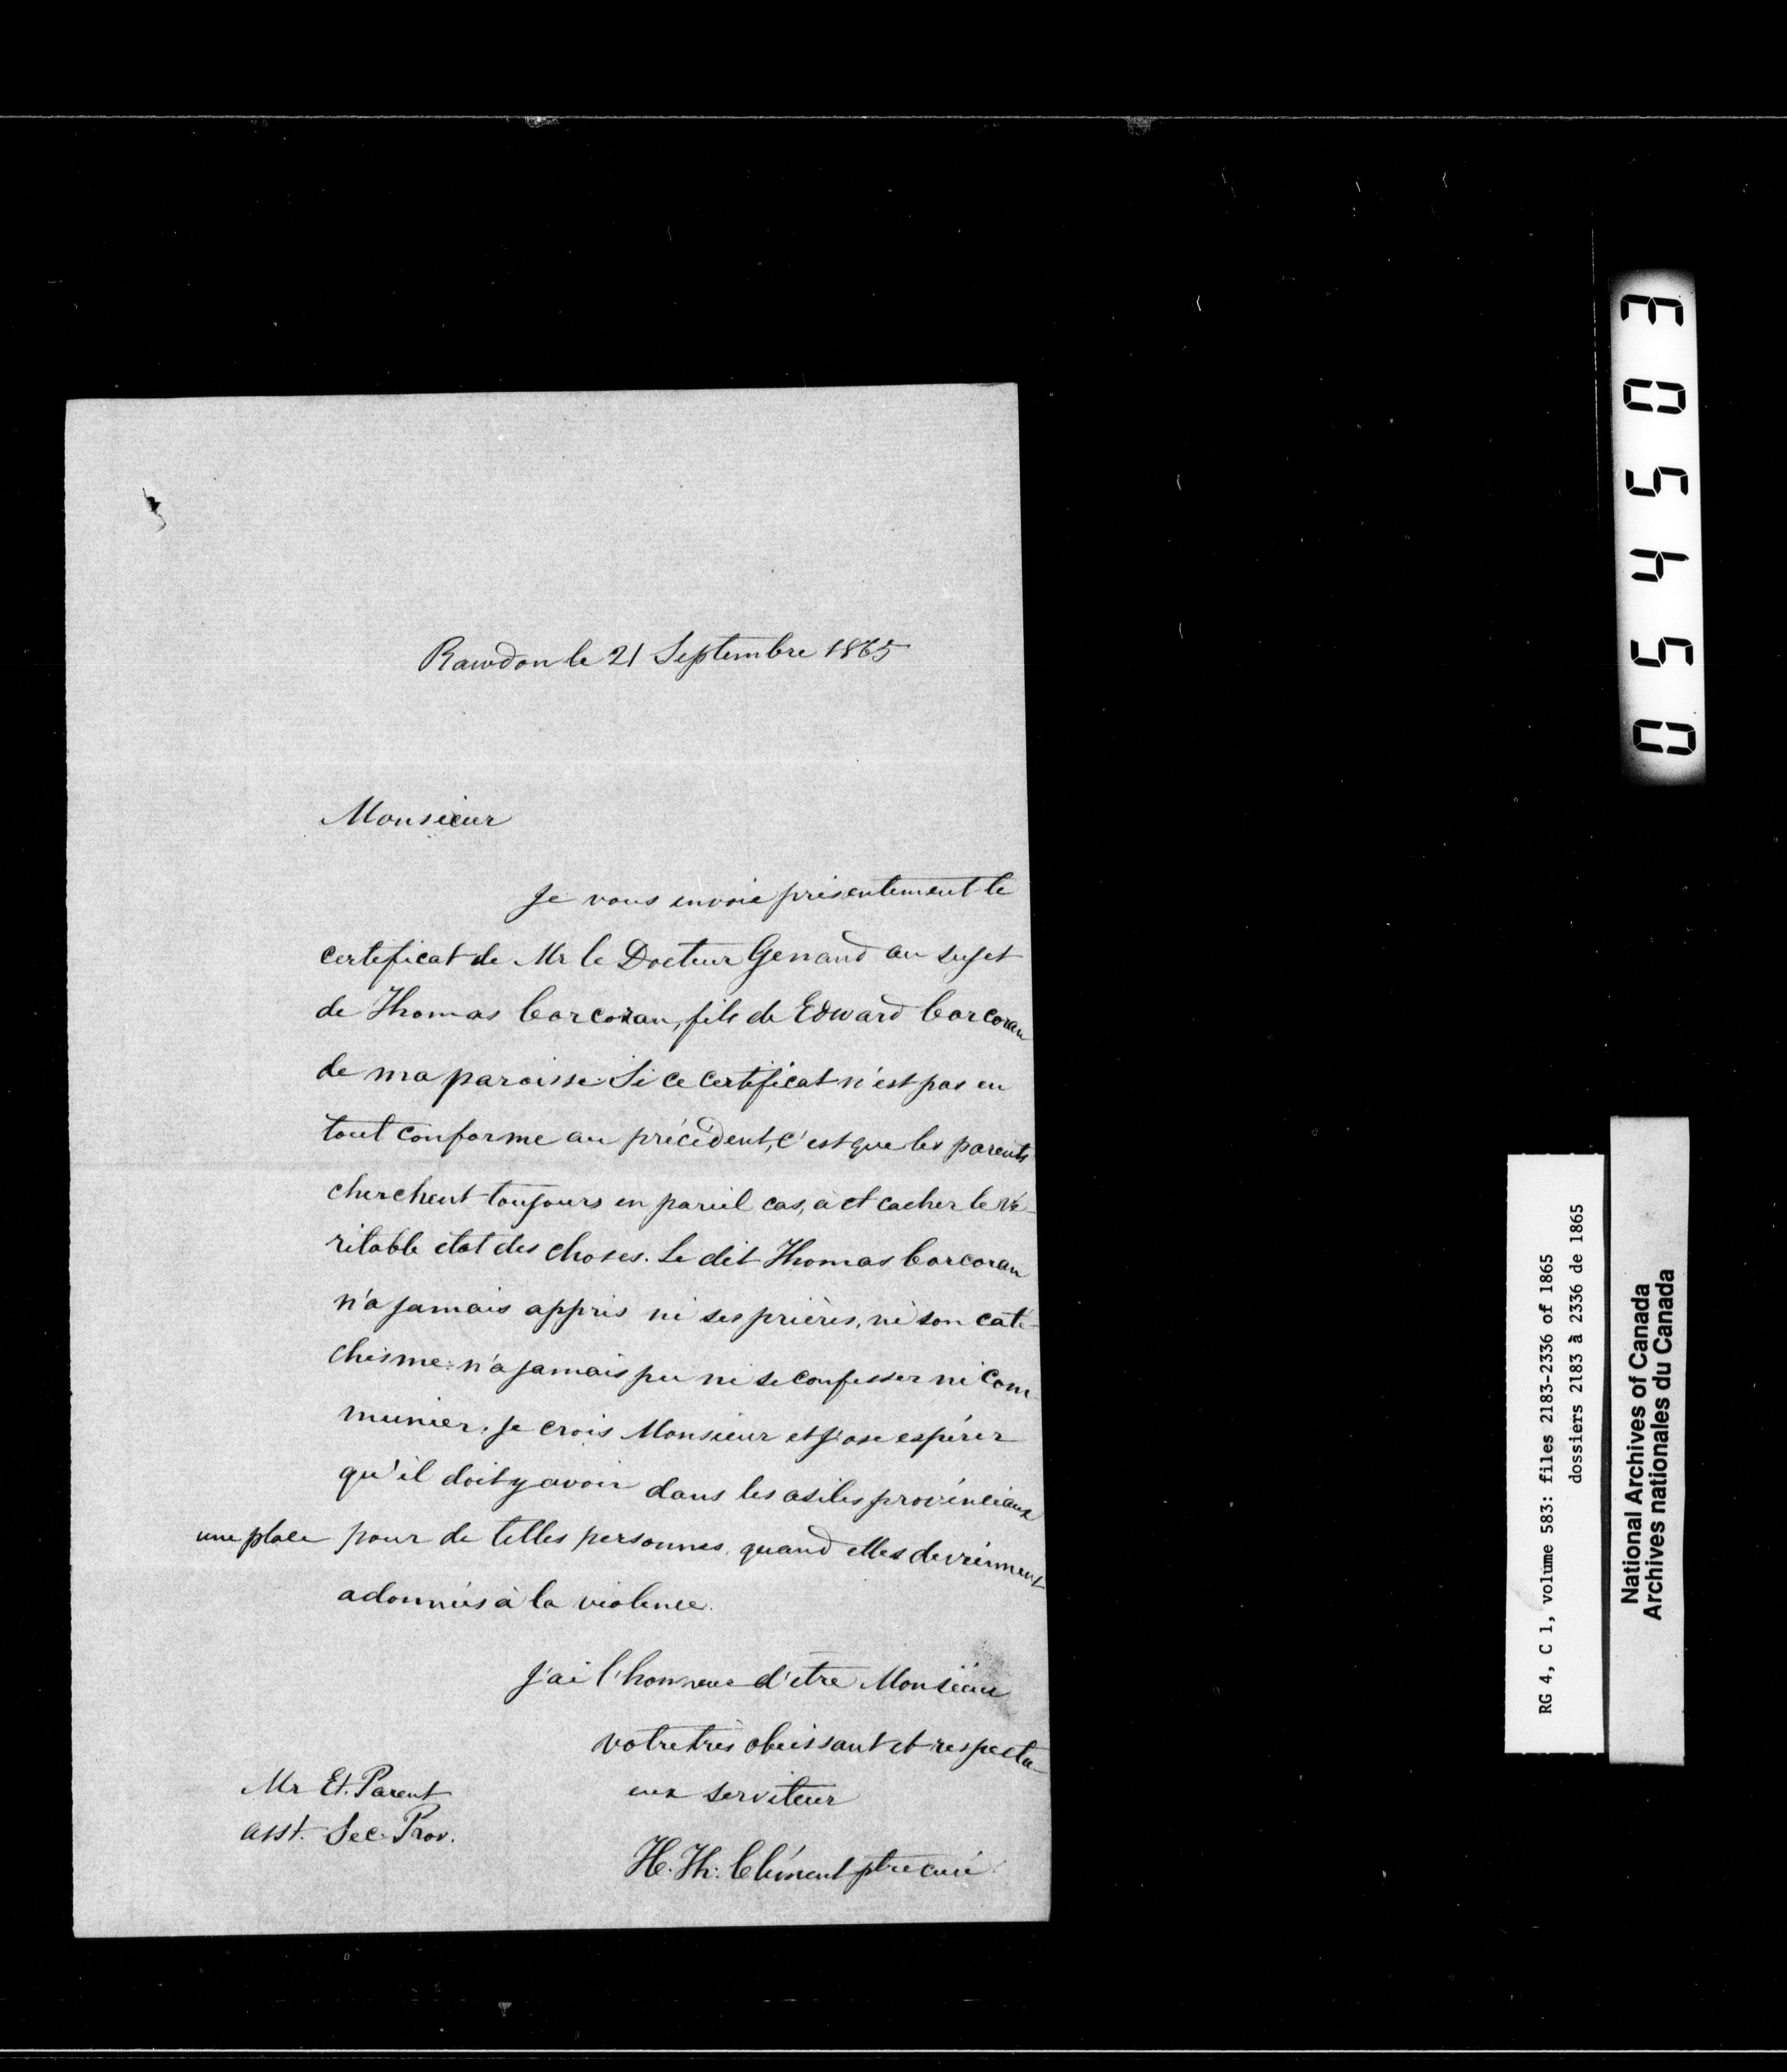 Rawdon le 21 Septembre 1865
Monsieur
Je vous envoie présentement le
certificat de Mr le Docteur Genand au sujet
de Thomas Corcoran, fils de Edward Corcoran
de ma paroisse. Si ce certificat n'est pas en
tout conforme au précédent, c'est que les parents
cherchent toujours en pareil cas, à cacher le vé-
ritable état des choses. Le dit Thomas Corcoran
n'a jamais appris ni ses prières, ni son caté-
chisme: n'a jamais pu ni se confesser ni com
munier. Je crois Monsieur et j'ose espérer
qu'il doit y avoir dans les asiles provinciaux
une place pour de telles personnes, quand elles deviennent
adonnées à la violence.
J'ai l'honneur d'être Monsieur
votre très obéissant et respectu-
eux serviteur
Mr Et. Parent
asst. Sec. Prov.
H. Th: Clément ptre curé
03450
RG 4, C 1, volume 583: files 2183-2336 of 1865
dossiers 2183 à 2336 de 1865
National Archives of Canada
Archives nationales du Canada